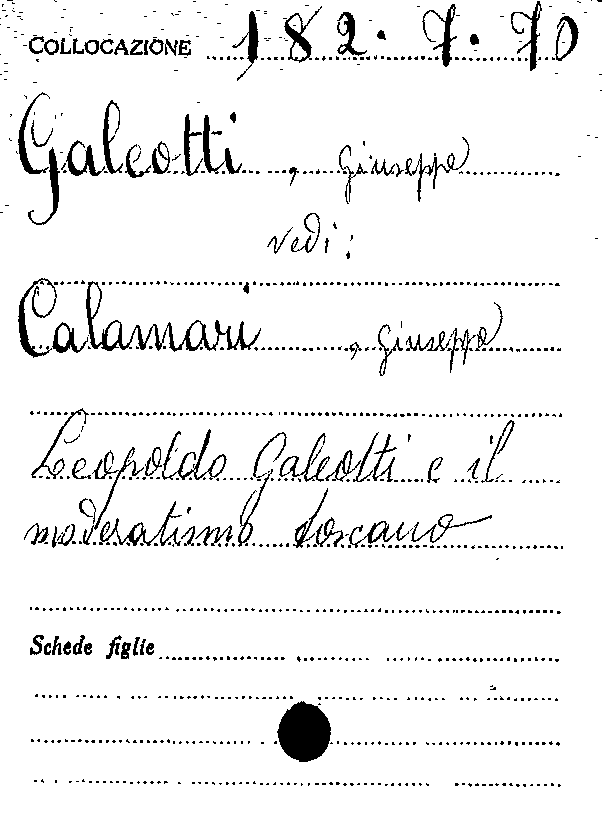 COLLOCAZIONE 182.7.70
Galeotti, Giuseppe
vedi:
Calamari, Giuseppe
Leopoldo Galeotti e il
moderatismo toscano
Schede figlie